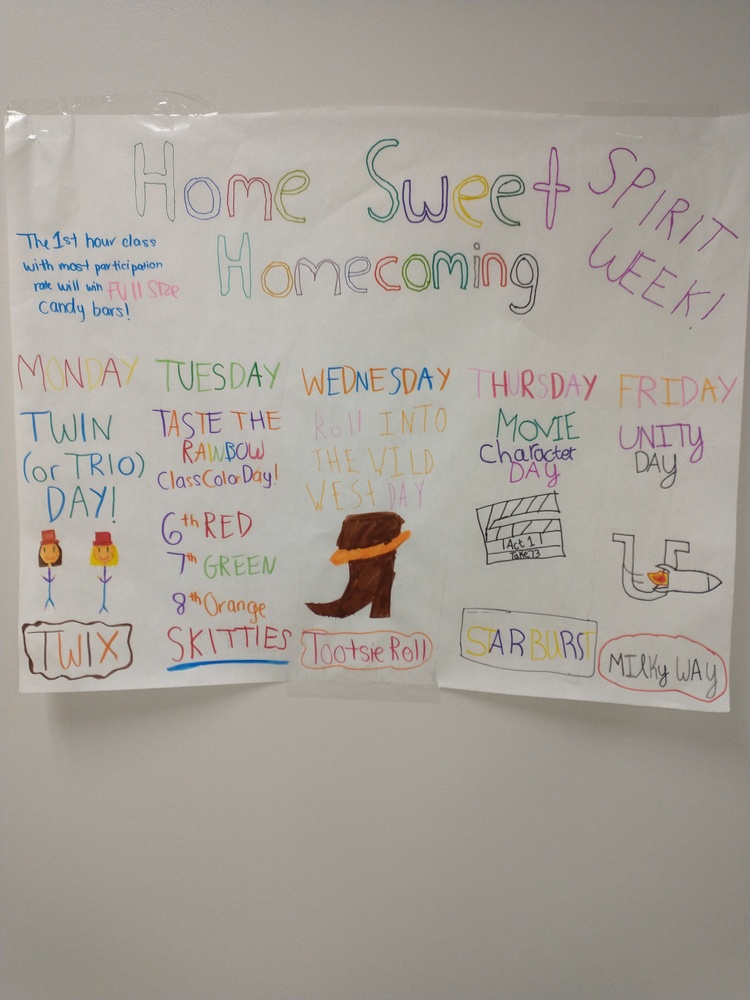 Home Sweet
Homecoming
SPIRIT
WEEK!
The 1st hour class
with most participation
rate will win FUll SIZe
candy bars!
MONDAY
TWIN
(or TRIO)
DAY!
TWIX
TUESDAY
TASTE THE
RAWBOW
Class Color Day!
6th RED
7th GREEN
8th Orange
SKITTIES
WEDNESDAY
Roll INTO
THE VILD
WESt DAY
Tootsie Roll
THURSDAY
MOVIE
Character
DAY
Act 1
Take 73
STARBURST
FRIDAY
UNITY
DAY
MIlky WAY